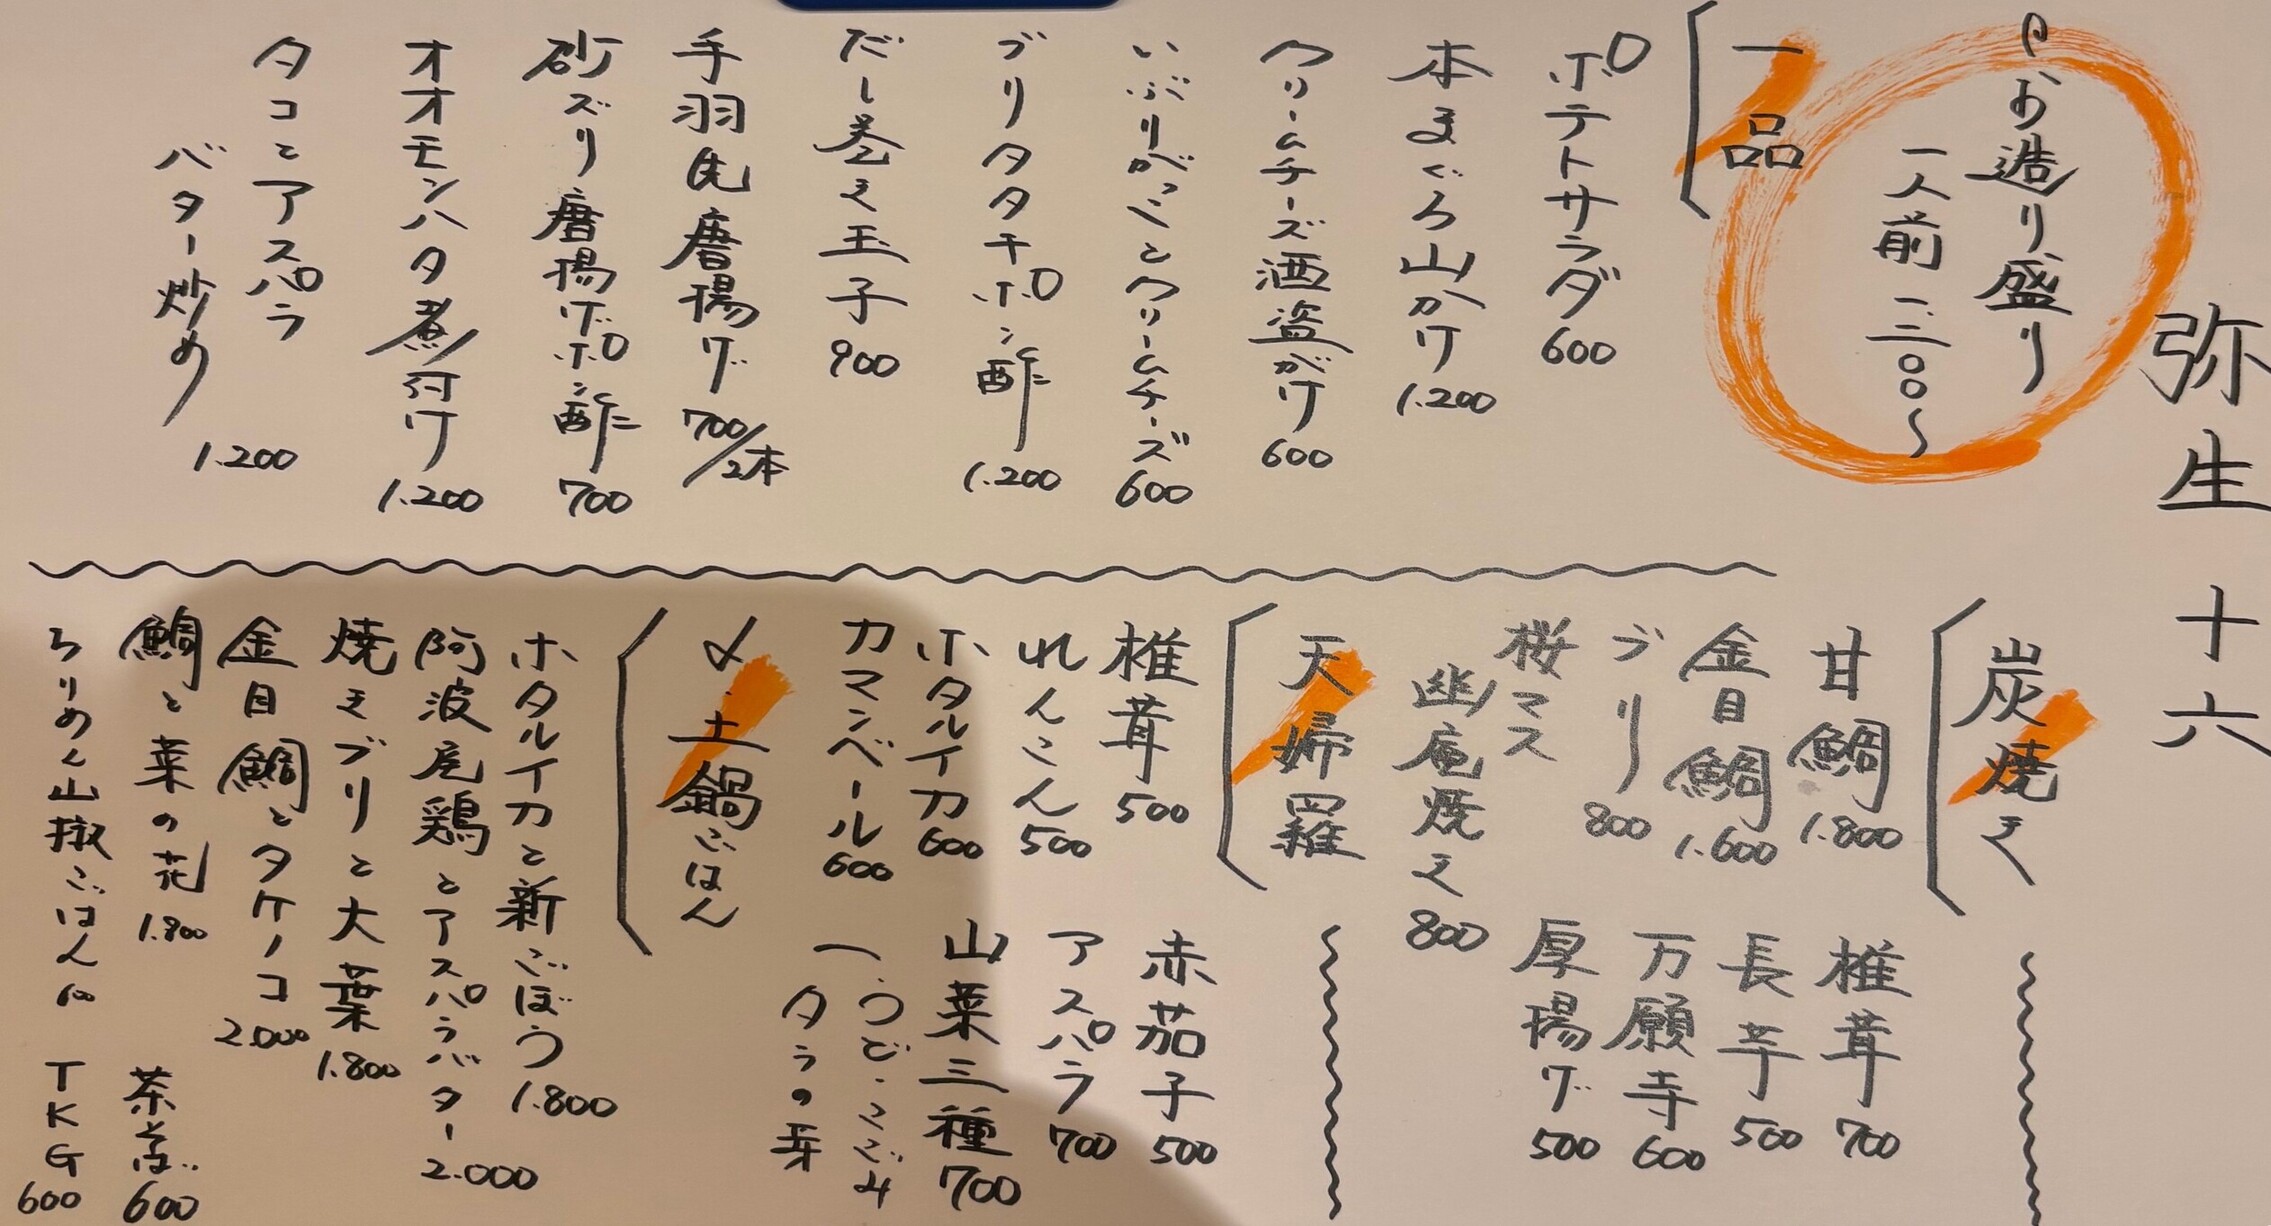 弥生十六
お造り盛り
一人前 一、三〇〇〜
一品
ポテトサラダ 600
本まぐろ山かけ 1.200
クリームチーズ酒盗がけ 600
いぶりがっことクリームチーズ 600
ブリタタキポン酢 1.200
だし巻き玉子 900
手羽先唐揚げ 700/2本
砂ズリ唐揚げポン酢 700
オオモンハタ煮付け 1.200
タコとアスパラ
バター炒め 1.200
炭焼き
甘鯛 1.800
金目鯛 1.600
ブリ 800
桜マス
幽庵焼き 800
椎茸 700
長芋 500
万願寺 600
厚揚げ 500
天婦羅
椎茸 500
れんこん 500
ホタルイカ 600
カマンベール 600
赤茄子 500
アスパラ 700
山菜三種 700
うど・こごみ
タラの芽
〆土鍋ごはん
ホタルイカと新ごぼう 1.800
阿波尾鶏とアスパラバター 2.000
焼きブリと大葉 1.800
金目鯛とタケノコ 2.000
鯛と菜の花 1.800
ちりめん山椒ごはん
茶そば 600
TKG 600